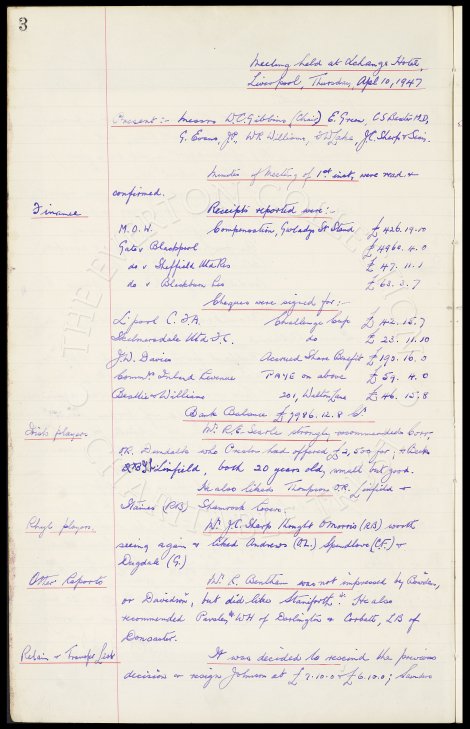 3
Meeting held at Exchange Hotel,
Liverpool, Thursday, April 10, 1947
Present :- Messrs W.C. Gibbins (Chair) E. Green, C.S. Baxter M.B.,
G. Evans, J.P., W.R. Williams, J.C. Sharp & Sec.
Minutes of Meeting of 1st inst, were read &
confirmed.
Finance
Receipts reported were:-
M.O.W. Compensation, Gwladys St Stand £ 426.19.10
Gate v Blackpool £ 4960. 4. 0
do v Sheffield Utd Res £ 47. 11. 1
do v Blackburn Res £ 63. 3. 7
Cheques were signed for:-
L'pool C.F.A. Challenge Cup £ 42. 15. 7
Skelmersdale Utd F.C. do £ 23. 11. 10
J.W. Davies Accrued Share Benefit £ 190. 16. 0
Commrs Inland Revenue PAYE on above £ 59. 4. 0
Beadle & Williams 201, Walton Lane £ 46. 15. 8
Bank Balance £7986. 12. 8 Cr
Irish players
Mr. R.E. Searle strongly recommended Corr,
O.R. Dundalk who Preston had offered £2,500 for; &
Linfield, both 20 years old, small but good.
He also liked Thompson O.R. Linfield &
(RB) Shamrock Rovers.
Rhyl players
Mr. J.C. Sharp thought Morris (RB) worth
seeing again & liked Andrews (OL) Spendlove (CF) &
Dugdale (G.)
Other Reports
Mr. R. Bentham was not impressed by Bowden,
or Davidson, but did like Staniforth. He also
recommended Parsley WH of Darlington & Corbett, LB of
Doncaster.
Retain & Transfer List
It was decided to rescind the previous
decision & resign Johnson at £7.10.0 & £6.10.0; Saunders